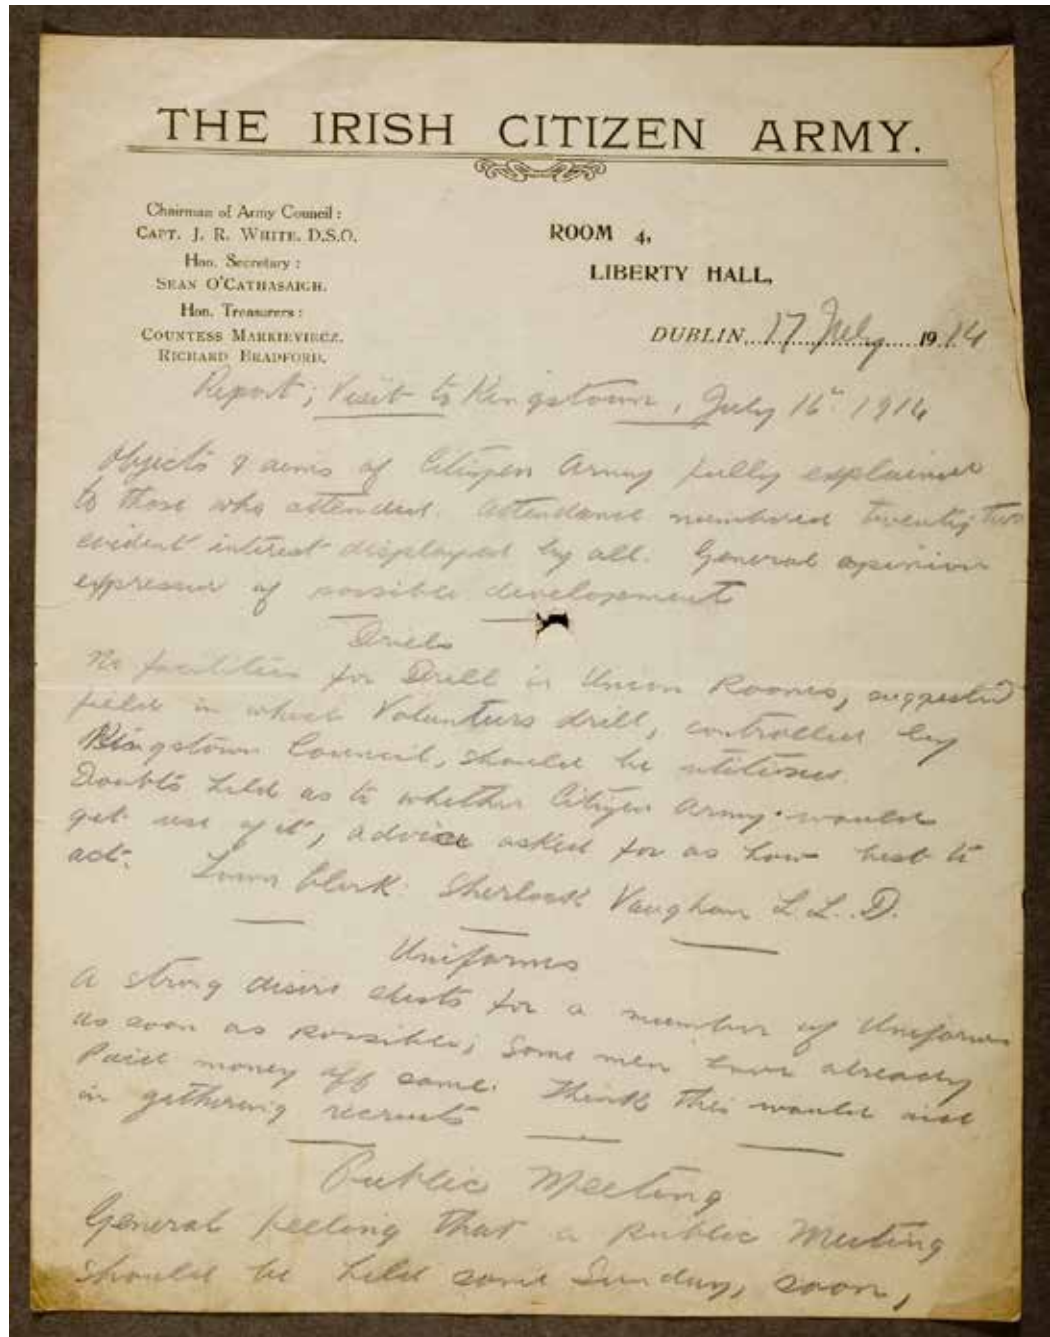 THE IRISH CITIZEN ARMY.
Chairman of Army Council:
CAPT. J. R. WHITE, D.S.O.
Hon. Secretary:
SEAN O'CATHASAIGH.
Hon. Treasurers:
COUNTESS MARKIEVICZ.
RICHARD BRADFORD.
ROOM 4,
LIBERTY HALL,
DUBLIN, 17 July 1914
Report; Visit to Kingstown, July 16th 1914
Objects & aims of Citizen Army fully explained
to those who attended. Attendance numbered twenty two
evident interest displayed by all. General opinion
expressed of possible developments
Drills
No facilities for Drill in Union Rooms, suggested
field in which Volunteers drill, controlled by
Kingstown Council, should be utilised.
Doubts held as to whether Citizen Army would
get use of it, advice asked for as how best to
act. Town Clerk Sherlock Vaughan L.L.D.
Uniforms
A strong desire exists for a number of Uniforms
as soon as possible; Some men have already
Paid money off same. Think this would aid
in gathering recruits
Public Meeting
General feeling that a Public Meeting
should be held some Sunday, soon,